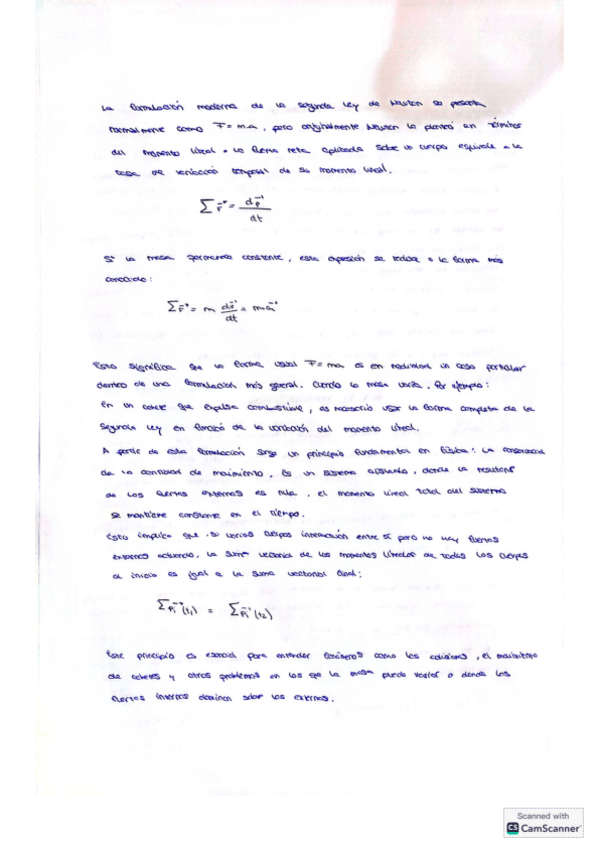 La formulación moderna de la segunda ley de Newton se presenta
normalmente como F = m.a, pero originalmente Newton la planteó en términos
del momento lineal. La fuerza neta aplicada sobre un cuerpo equivale a la
tasa de variación temporal de su momento lineal.
∑F⃗ = dp⃗/dt
Si la masa permanece constante, esta expresión se reduce a la forma más
conocida:
∑F⃗ = m dv⃗/dt = m.a⃗
Esto significa que la forma usual F = ma es en realidad un caso particular
dentro de una formulación más general. Cuando la masa varía. Por ejemplo:
En un cohete que expulsa combustible, es necesario usar la forma completa de la
segunda ley en función de la variación del momento lineal.
A partir de esta formulación surge un principio fundamental en física: La conservación
de la cantidad de movimiento. En un sistema aislado, donde la resultante
de las fuerzas externas es nula, el momento lineal total del sistema
se mantiene constante en el tiempo.
Esto implica que si varios cuerpos interactúan entre sí pero no hay fuerzas
externas actuando, la suma vectorial de los momentos lineales de todos los cuerpos
al inicio es igual a la suma vectorial final:
∑p⃗i(t1) = ∑p⃗i(t2)
Este principio es esencial para entender fenómenos como las colisiones, el movimiento
de cohetes y otros problemas en los que la masa puede variar o donde las
fuerzas internas dominan sobre las externas.
Scanned with
CS CamScanner